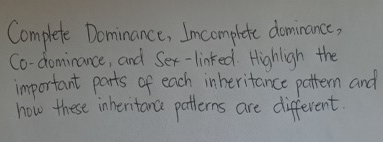 Complete Dominance, Imcomplete dominance,
Co-dominance, and Sex-linked. Highligh the
important parts of each inheritance pattern and
how these inheritance patterns are different.